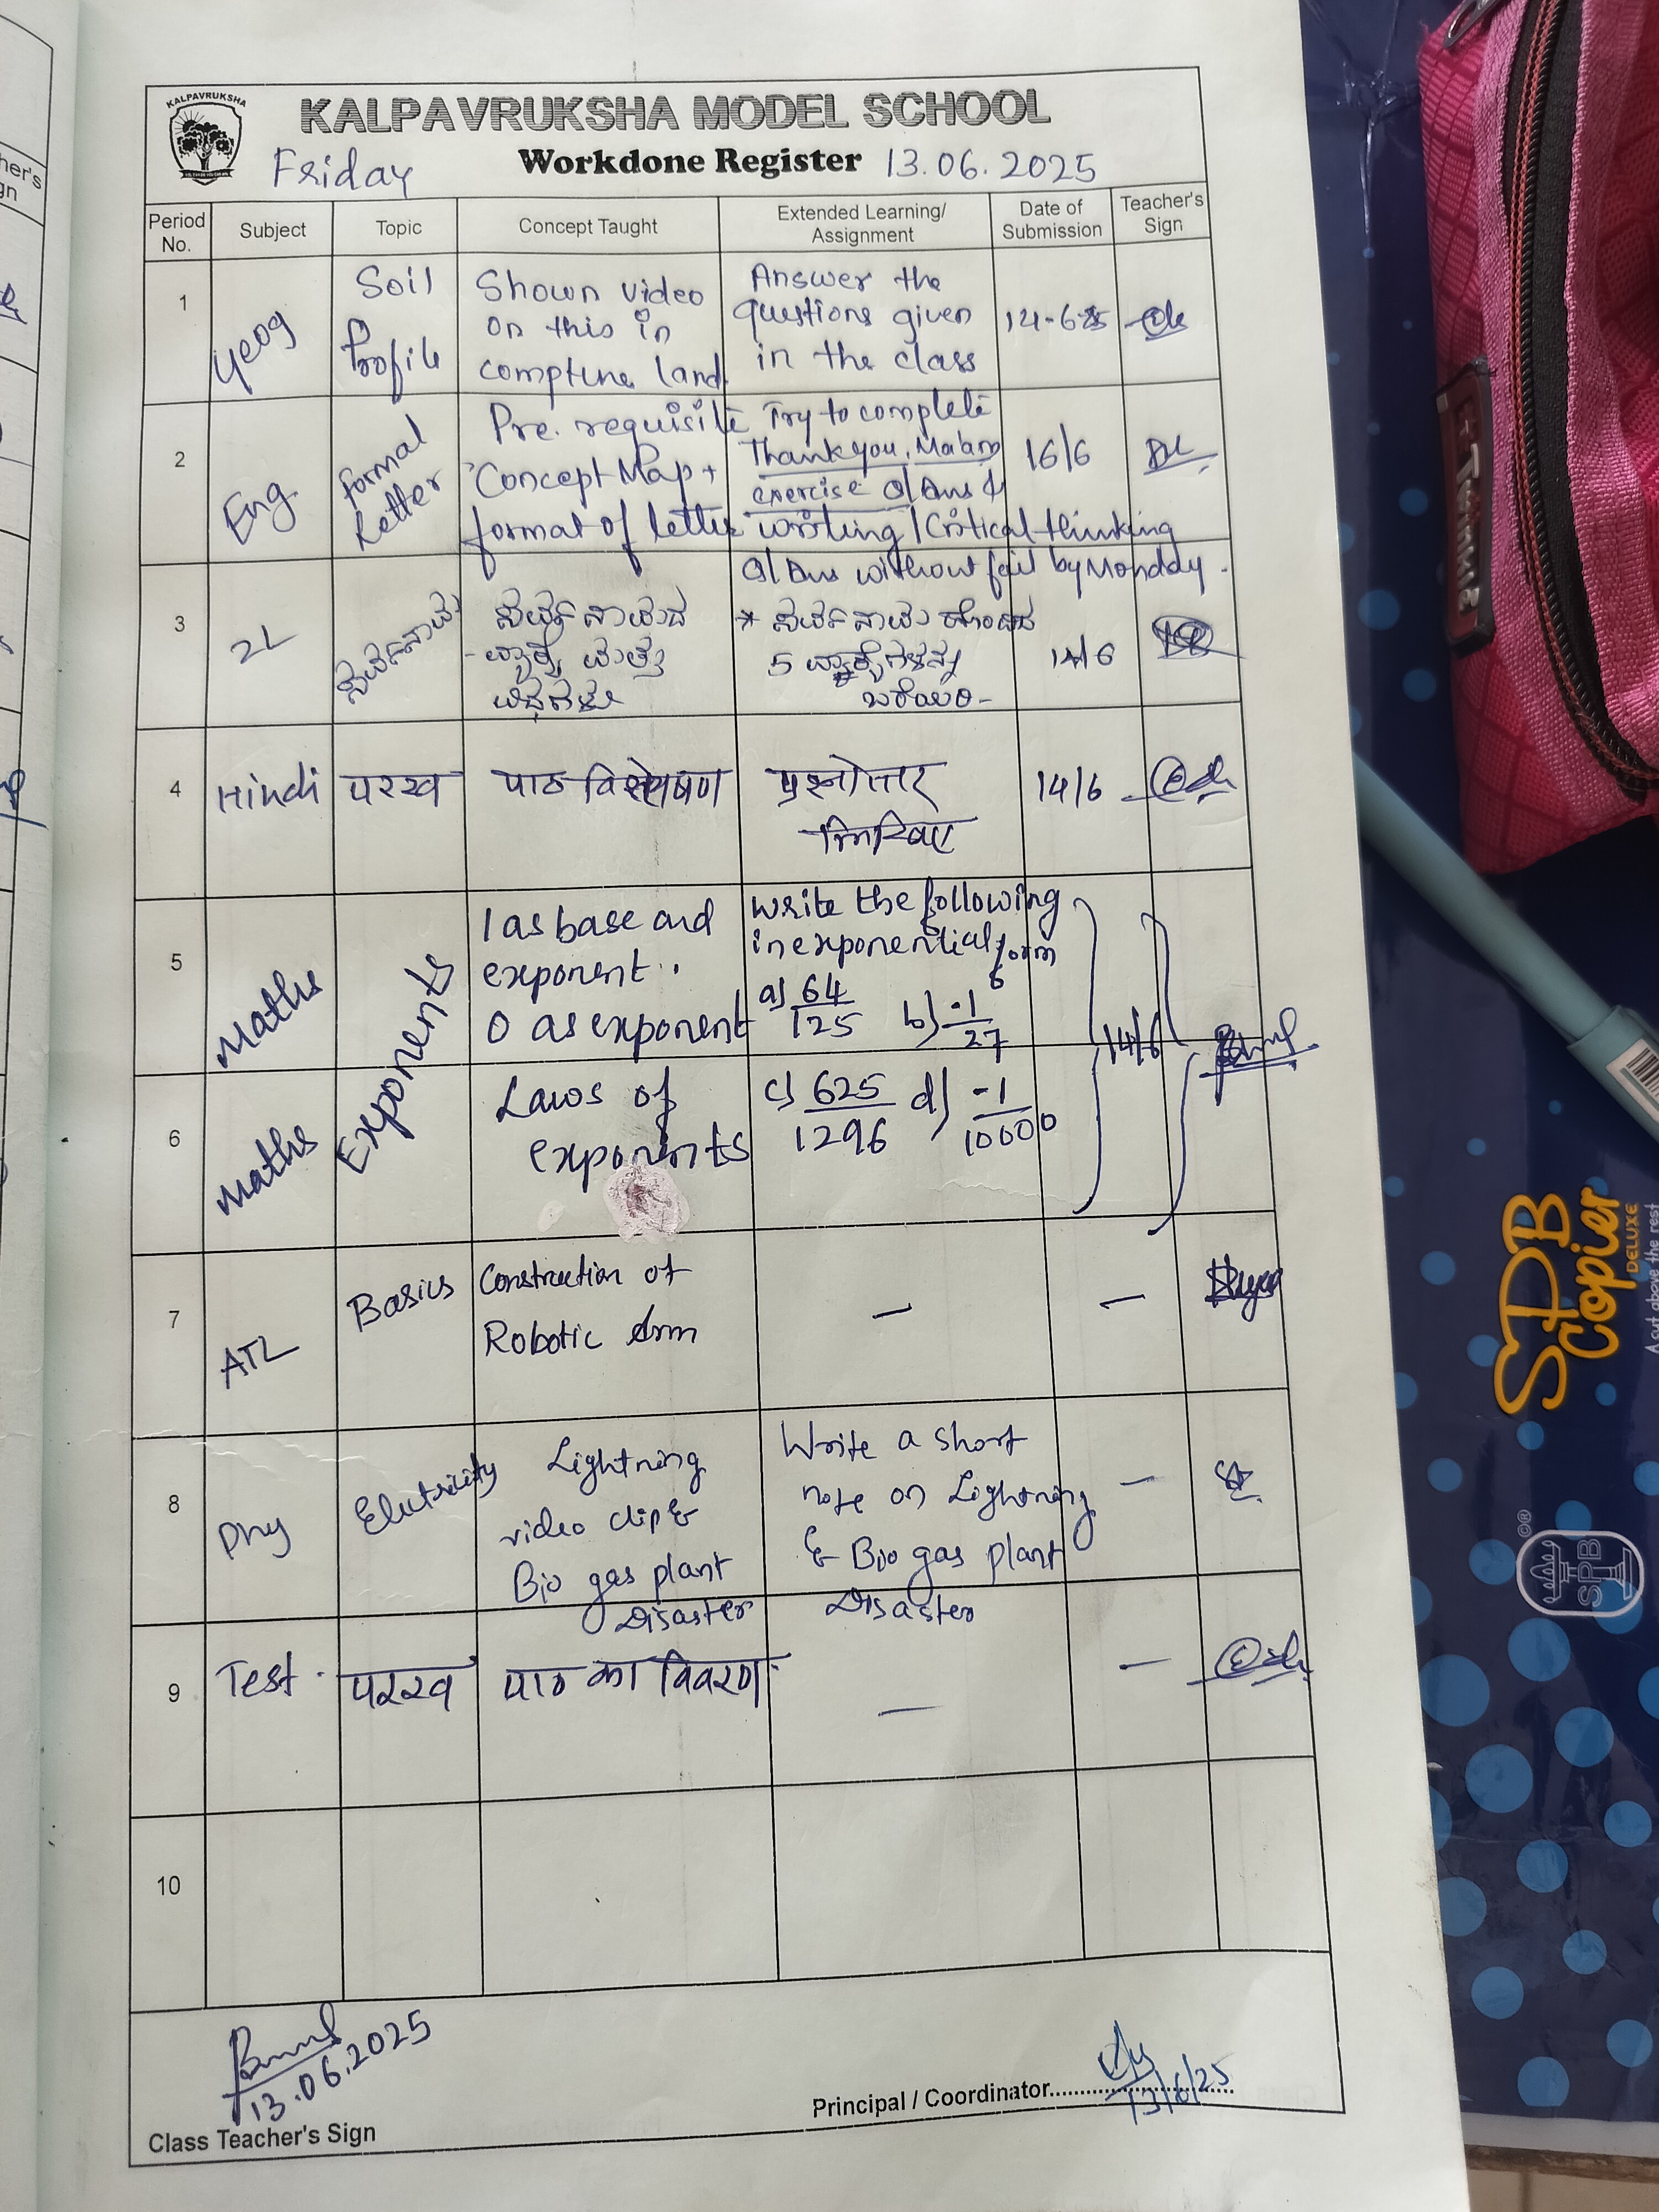 KALPAVRUKSHA
KALPAVRUKSHA MODEL SCHOOL
Friday Workdone Register 13.06.2025
Period No. Subject Topic Concept Taught Extended Learning/ Assignment Date of Submission Teacher's Sign
1 geog Soil Profile
Shown video
on this in
land
Answer the
questions given
in the class
14-6-25
2 Eng formal Letter
Pre. requisite
Concept Map +
format of letter
Try to complete
Thank you, Ma'am
exercise Q/Ans &
writing/Critical thinking
Q/Ans without fail by Monday.
16/6
3 2L ಸರ್ವನಾಮ
ಸರ್ವನಾಮದ
ಮತ್ತು
ವಿಧಗಳು
* ಸರ್ವನಾಮ ಹೊಂದಿದ
5
ಬರೆಯಿರಿ-
14/6
4 Hindi परख पाठ विश्लेषण
प्रश्नोत्तर
लिखिए
14/6
5 Maths Exponents
1 as base and
exponent.
0 as exponent
Write the following
in exponential form
a) 64/125 b) -1/27
14/6
6 Maths
Laws of
exponents
c) 625/1296 d) -1/10000
7 ATL Basics
Construction of
Robotic Arm
— —
8 Phy Electricity
Lightning
video clip &
Bio gas plant
Disaster
Write a short
note on Lightning
& Bio gas plant
Disaster
—
9 Test. परख पाठ का विवरण
— —
10
13.06.2025
Class Teacher's Sign
Principal / Coordinator
13/6/25
her's
gn
TRUNK
SPB
Copier
DELUXE
A cut above the rest
SPB